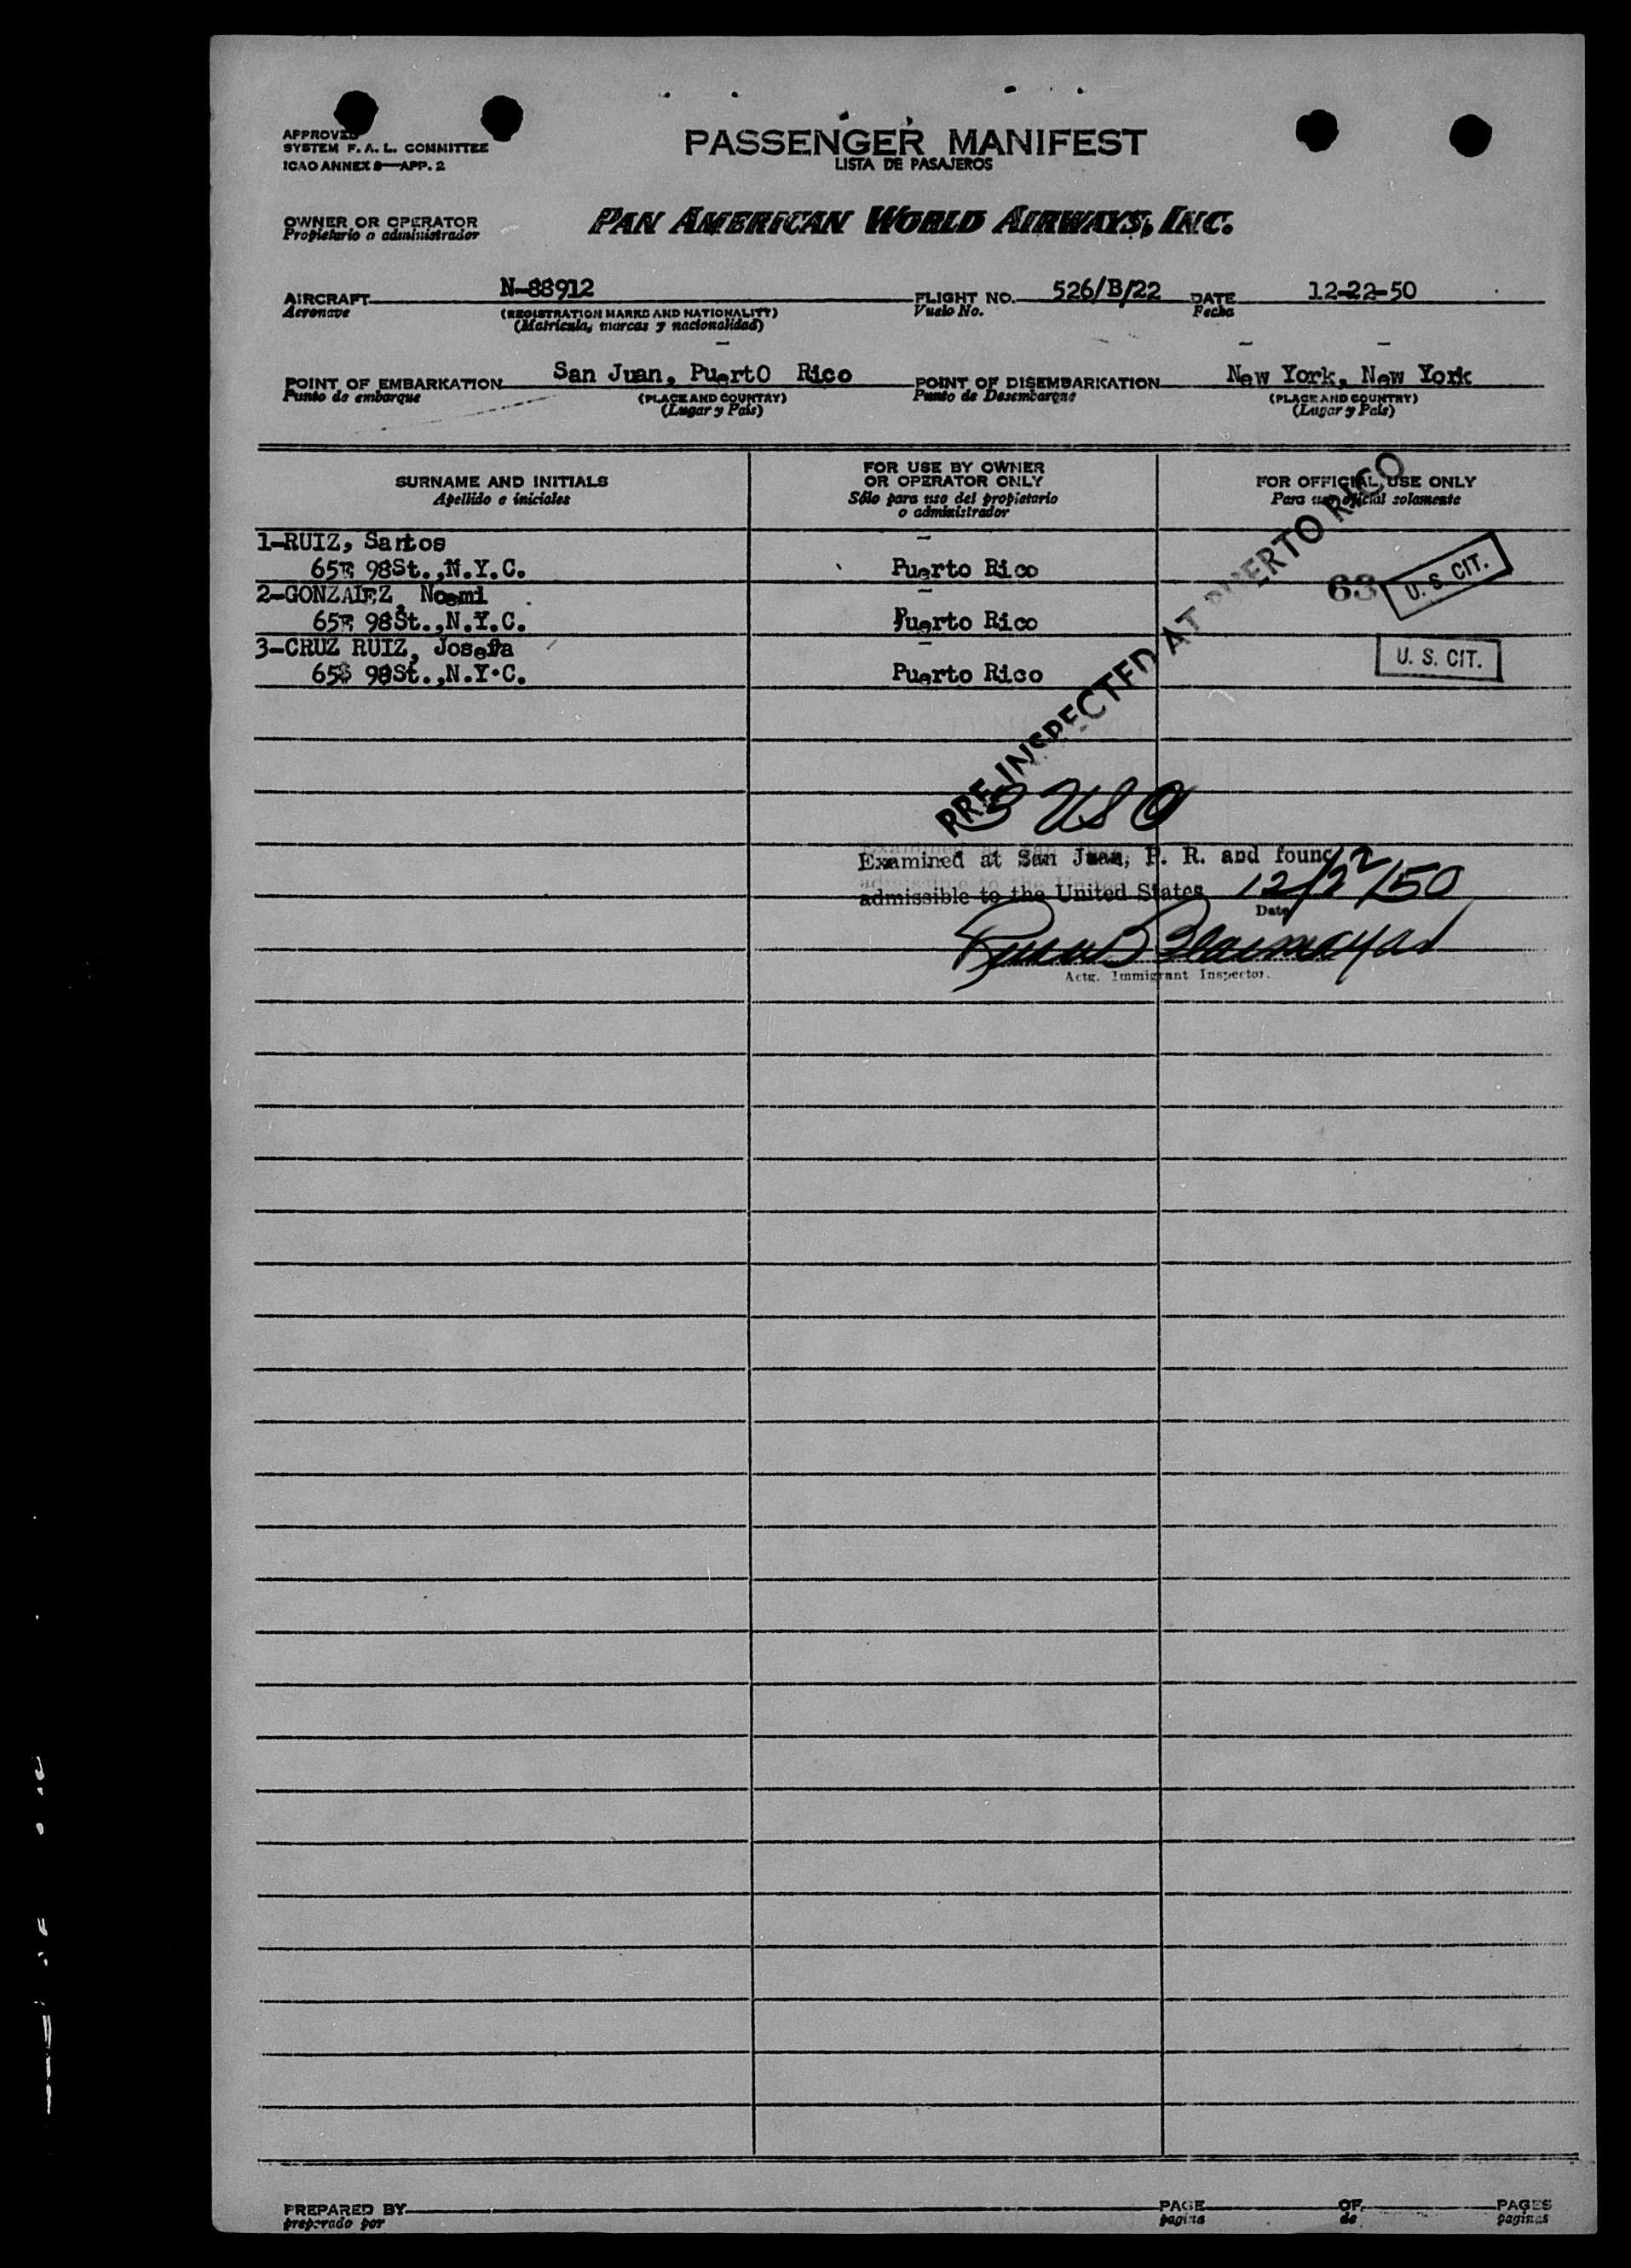 APPROVED
SYSTEM F. A. L. COMMITTEE
ICAO ANNEX 9—APP. 2
PASSENGER MANIFEST
LISTA DE PASAJEROS
OWNER OR OPERATOR
Propietario o administrador
PAN AMERICAN WORLD AIRWAYS, INC.
AIRCRAFT N-88912 FLIGHT NO. 526/B/22 DATE 12-22-50
Aeronave (REGISTRATION MARKS AND NATIONALITY) Vuelo No. Fecha
(Matricula, marcas y nacionalidad)
POINT OF EMBARKATION San Juan, PuertO Rico POINT OF DISEMBARKATION New York, New York
Punto de embarque (PLACE AND COUNTRY) Punto de Desembarque (PLACE AND COUNTRY)
(Lugar y Pais) (Lugar y Pais)
SURNAME AND INITIALS
Apellido e iniciales
FOR USE BY OWNER
OR OPERATOR ONLY
Sólo para uso del propietario
o administrador
FOR OFFICIAL USE ONLY
Para uso oficial solamente
1-RUIZ, Santos
65E 98St.,N.Y.C. Puerto Rico
63 U. S. CIT.
2-GONZALEZ, Noemi
65E 98St.,N.Y.C. Puerto Rico
3-CRUZ RUIZ, Josefa
98St.,N.Y.C. Puerto Rico
U. S. CIT.
PRE-INSPECTED AT PUERTO RICO
3 USC
Examined at San Juan, P. R. and found
admissible to the United States 12/22/50
Date
Actg. Immigrant Inspector.
PREPARED BY PAGE OF PAGES
preparado por pagina de paginas